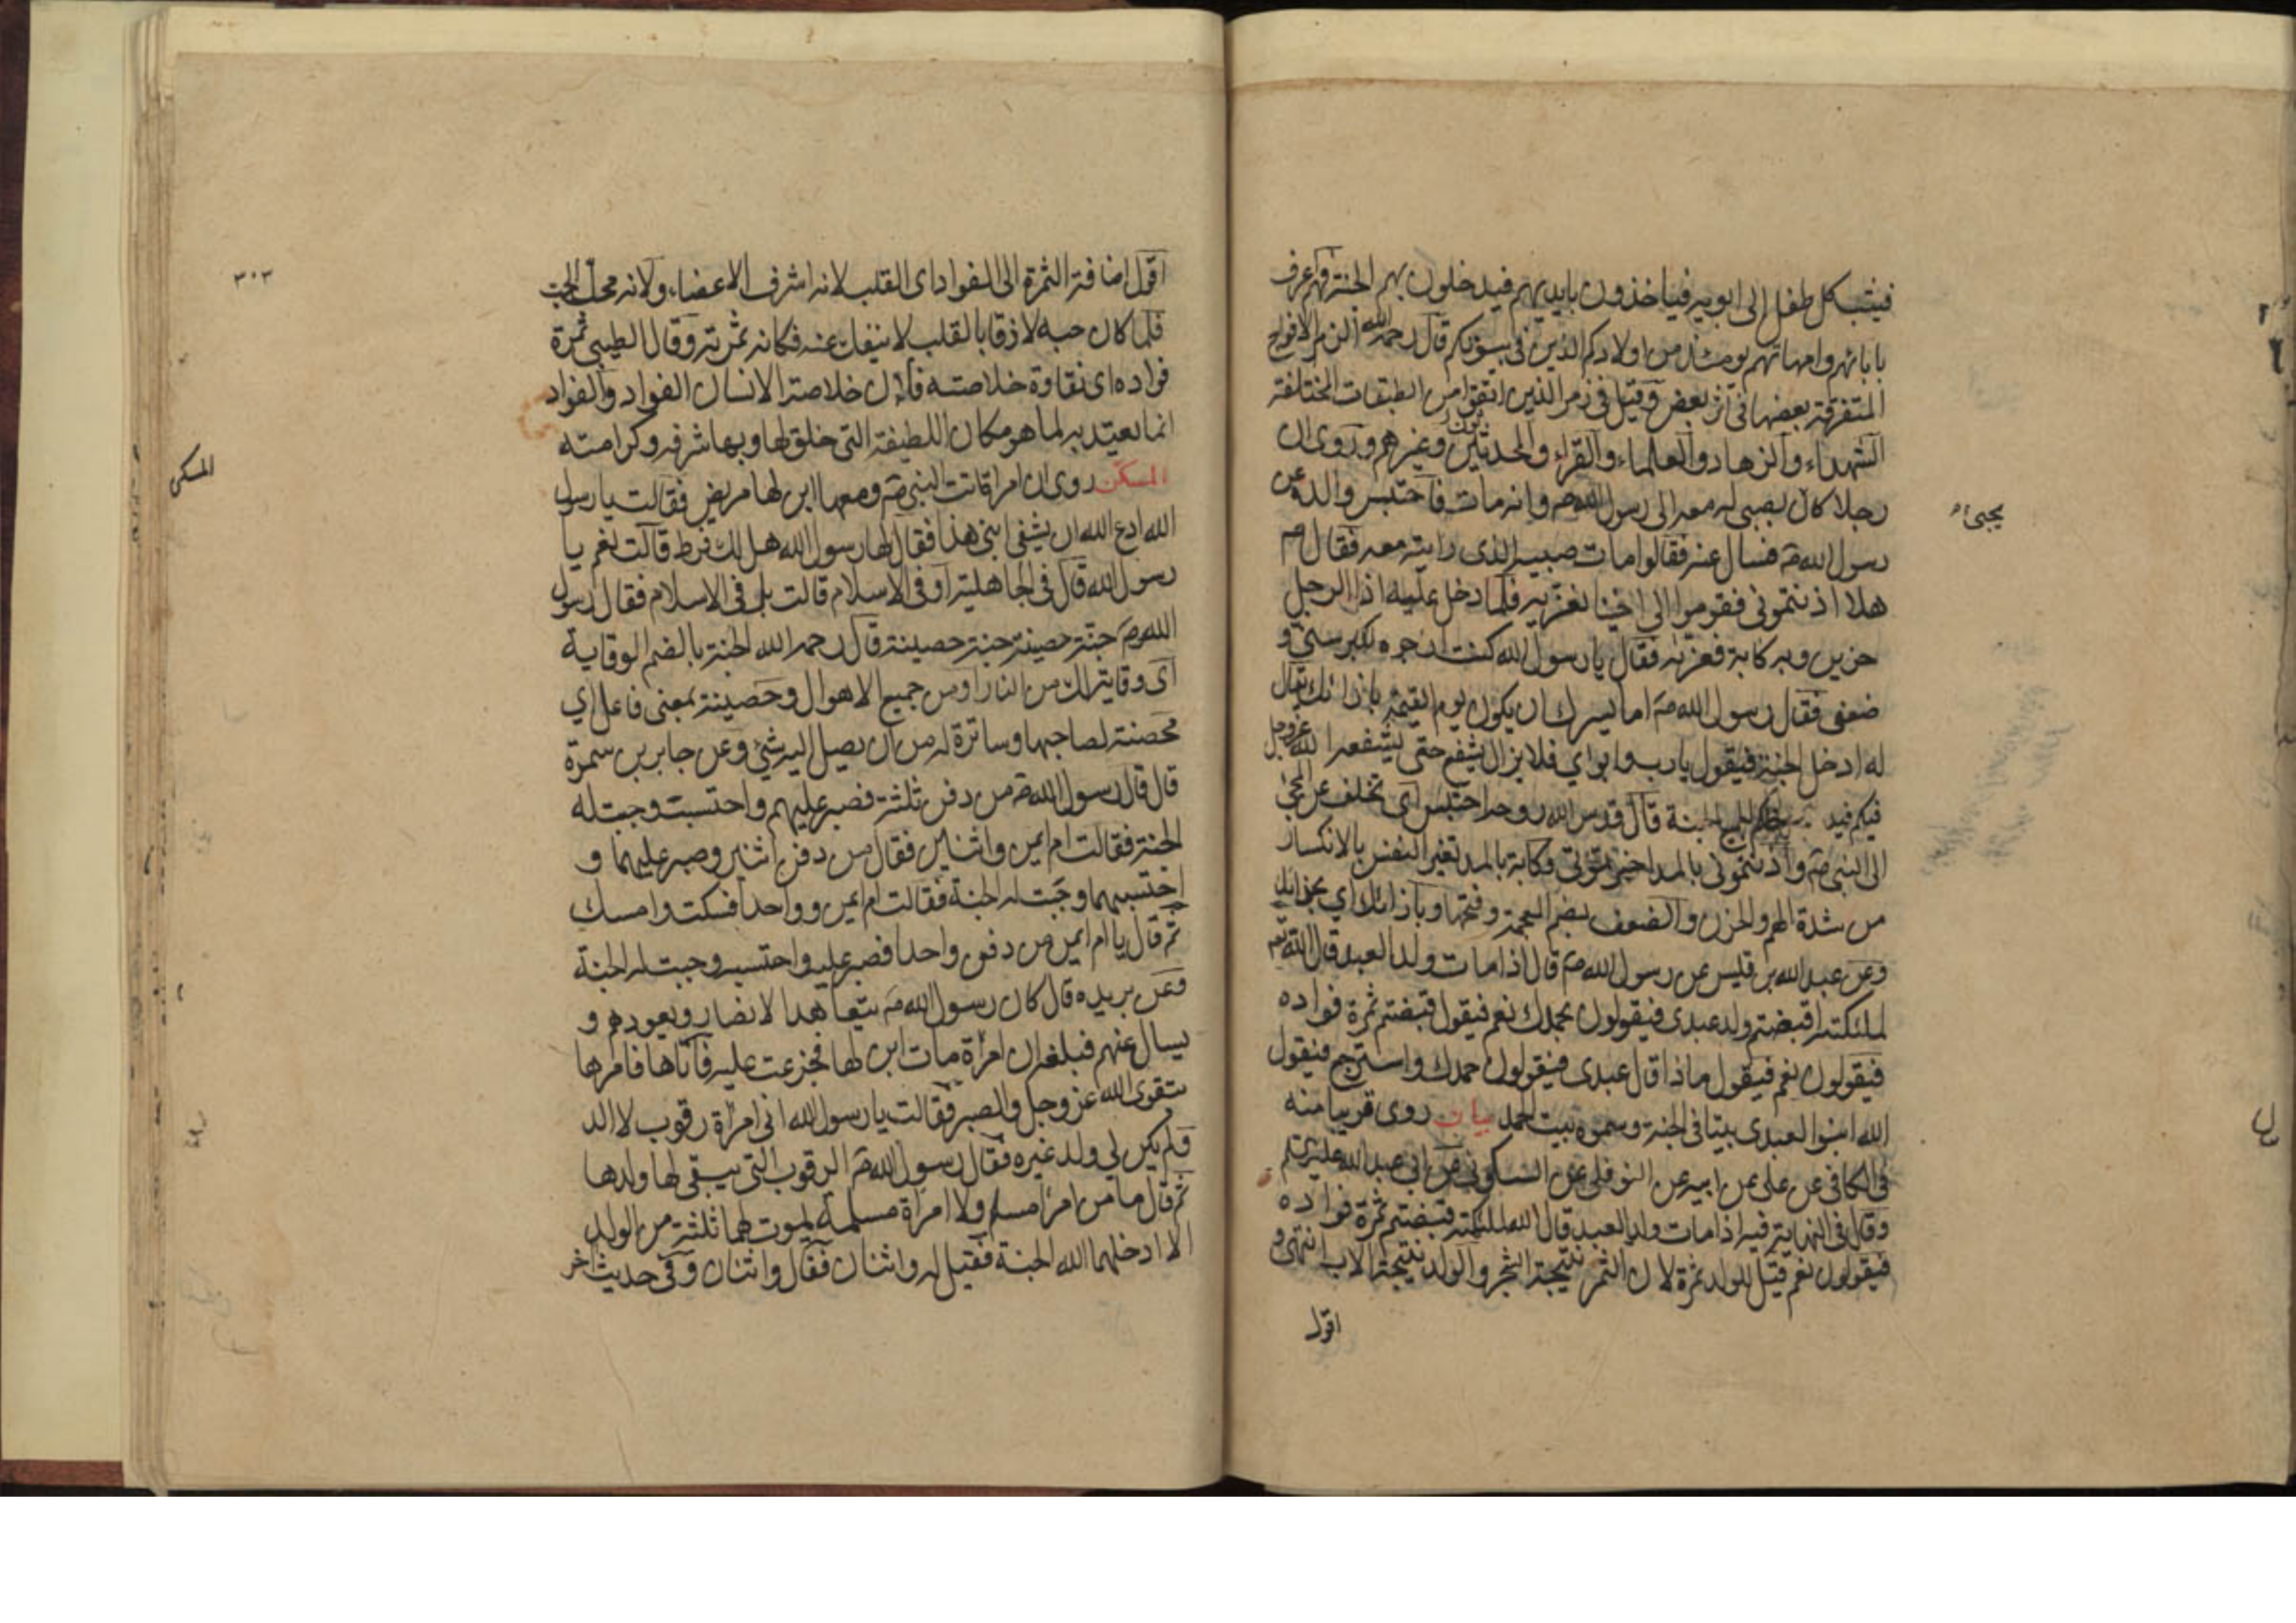 فيثب كل طفل الى ابويه فياخذون بايديهم فيدخلون بهم الجنة فهم عرف
بابائهم وامهاتهم يومئذ من اولادكم الذين في بيوتكم قال رحمه الله الزمر الافواج
المتفرقة بعضها في اثر بعض وقيل في زمر الذين اتقوا من الطبقات المختلفة
الشهداء والزهاد والعلماء والقراء والمحدثون وغيرهم وروى ان
رجلا كان يجيئ بصبي له معه الى رسول الله ص وانه مات فاحتبس والده عن
رسول الله ص فسال عنه فقالوا مات صبيه الذي رايته معه فقال ص
هلا اذنتموني فقوموا الى اخينا نعزيه فلما دخل عليه اذا الرجل
حزين وبه كابة فعزاه فقال يا رسول الله كنت ارجوه لكبر سني و
ضعفي فقال رسول الله ص اما يسرك ان يكون يوم القيمة بازائك يقال
له ادخل الجنة فيقول يا رب وابواي فلا يزال يشفع حتى يشفعه الله عز وجل
فيكم فيدخلكم الجنة قال قدس الله روحه احتبس اي تخلف عن المجئ
الى النبي ص واذنتموني بالمد اخبرتموني وكابة بالمد تغير النفس بالانكسار
من شدة الهم والحزن والضعف بضم المعجمة وفتحها وبازائك اي بحذائك
وعن عبد الله بن قيس عن رسول الله ص قال اذا مات ولد العبد قال الله تعم
لملئكته اقبضتم ولد عبدى فيقولون بحمدك نعم فيقول قبضتم ثمرة فواده
فيقولون نعم فيقول ماذا قال عبدى فيقولون حمدك واسترجع فيقول
الله ابنوا لعبدى بيتا في الجنة وسموه بيت الحمد بيان روى قريبا منه
في الكافي عن علي عن ابيه عن النوفلي عن السكوني عن ابي عبد الله عليه السلم
وقال في النهاية فيه اذا مات ولد العبد قال الله لملئكته قبضتم ثمرة فواده
فيقولون نعم قيل للولد ثمرة لان الثمر نتيجة الشجر والولد نتيجة الاب انتهى و
اقول
يجيئ
٣٠٣
اقول اضافة الثمرة الى الفواد اى القلب لانه اشرف الاعضاء ولانه محل الحب
فلما كان حبه لازقا بالقلب لا ينفك عنه فكانه ثمرته وقال الطيبي ثمرة
فواده اى نقاوة خلاصته فان خلاصة الانسان الفواد والفواد
انما يعتد به لما هو مكان اللطيفة التي خلق لها وبها شرفه وكرامته
المسكن روى ان امراة اتت النبي ص ومعها ابن لها مريض فقالت يا رسول
الله ادع الله ان يشفى ابني هذا فقال لها رسول الله هل لك فرط قالت نعم يا
رسول الله قال في الجاهلية او في الاسلام قالت بل في الاسلام فقال رسول
الله ص جنة حصينة جنة حصينة قال رحمه الله الجنة بالضم الوقاية
اى وقاية لك من النار او من جميع الاهوال وحصينة بمعنى فاعل اي
محصنة لصاحبها وساترة له من ان يصل اليه شئ وعن جابر بن سمرة
قال قال رسول الله ص من دفن ثلثة فصبر عليهم واحتسب وجبت له
الجنة فقالت ام ايمن واثنين فقال من دفن اثنين وصبر عليهما و
احتسبهما وجبت له الجنة فقالت ام ايمن وواحدا فسكت وامسك
ثم قال يا ام ايمن من دفن واحدا فصبر عليه واحتسبه وجبت له الجنة
وعن بريده قال كان رسول الله ص يتعاهد الانصار ويعودهم و
يسال عنهم فبلغه ان امراة مات ابن لها فجزعت عليه فاتاها فامرها
بتقوى الله عز وجل والصبر فقالت يا رسول الله اني امراة رقوب لا الد
ولم يكن لي ولد غيره فقال رسول الله ص الرقوب التي يبقى لها ولدها
ثم قال ما من امرا مسلم ولا امراة مسلمة يموت لهما ثلثة من الولد
الا ادخلهما الله الجنة فقيل له واثنان فقال واثنان وفي حديث اخر
المسكن